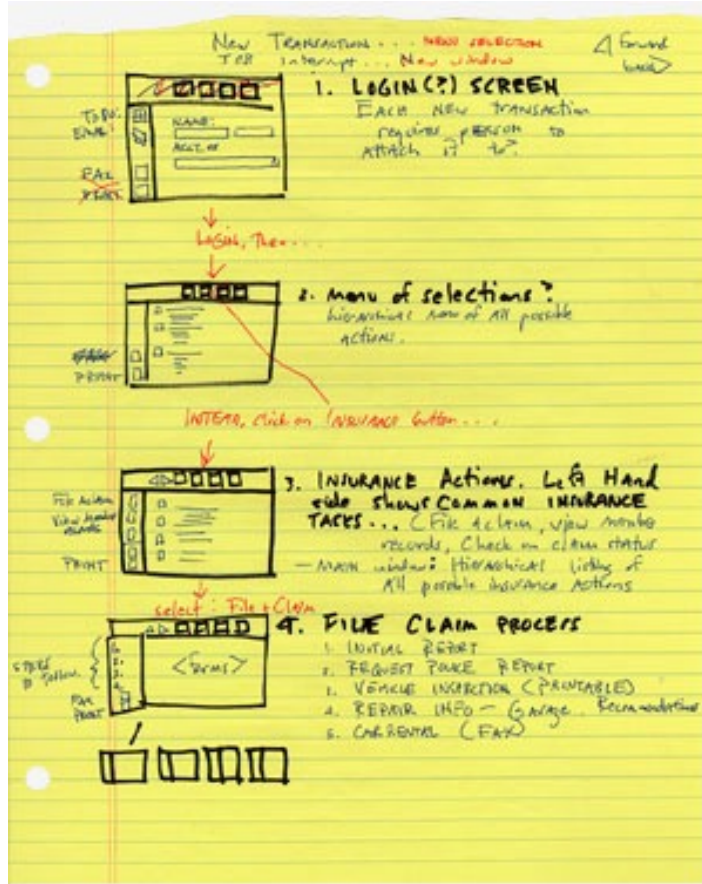 New Transaction... NEW SELECTION
Interrupt... New window
forward
back
1. LOGIN(?) SCREEN
EACH NEW transaction
requires person to
attach it to?
TO DO:
EMAIL:
FAX
PRINT
NAME:
ACCT. #
LOGIN, Then...
2. Menu of selections?
hierarchical menu of All possible
Actions.
PRINT
INSTEAD, click on INSURANCE button....
3. INSURANCE Actions. Left Hand
side shows Common INSURANCE
TASKS... (File a claim, view
records, Check on claim status
— MAIN window: Hierarchical listing of
All possible insurance Actions
File A claim
View
PRINT
select: File a Claim
4. FILE CLAIM PROCESS
1. INITIAL REPORT
2. REQUEST POLICE REPORT
3. VEHICLE INSPECTION (PRINTABLE)
4. REPAIR INFO — GARAGE Recommendations
5. CAR RENTAL (FAX)
STEPS
to follow.
FAX
PRINT
1.
2.
3.
4.
<forms>